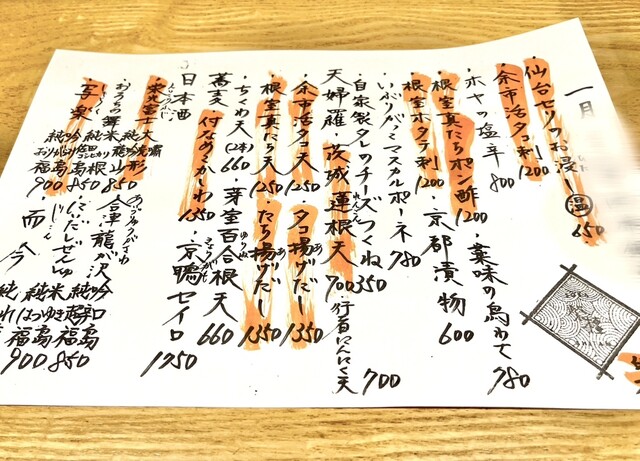 一月
・仙台セリのお浸し 温 650
・余市活タコ刺 1200
・ホヤの塩辛 800
・薬味の鳥わさ 780
・根室真だちポン酢 1200
・京都漬物 600
・根室ホタテ刺 1200
・いぶりがっこマスカルポーネ 780
・自家製タレのチーズつくね 350
天婦羅・茨城蓮根天 700
・行者にんにく天 700
・余市活タコ天 1250
・タコ揚げだし 1350
・根室真だち天 1250
・たち揚げだし 1350
・ちくわ天(2本) 660
・芽室百合根天 660
蕎麦 付なめこかしわ 1350
・京鴨セイロ 1750
日本酒
・栄光冨士 山形 850
・おろちの舞 島根
・会津龍が沢 福島 850
・写楽 福島 900
・而今 900